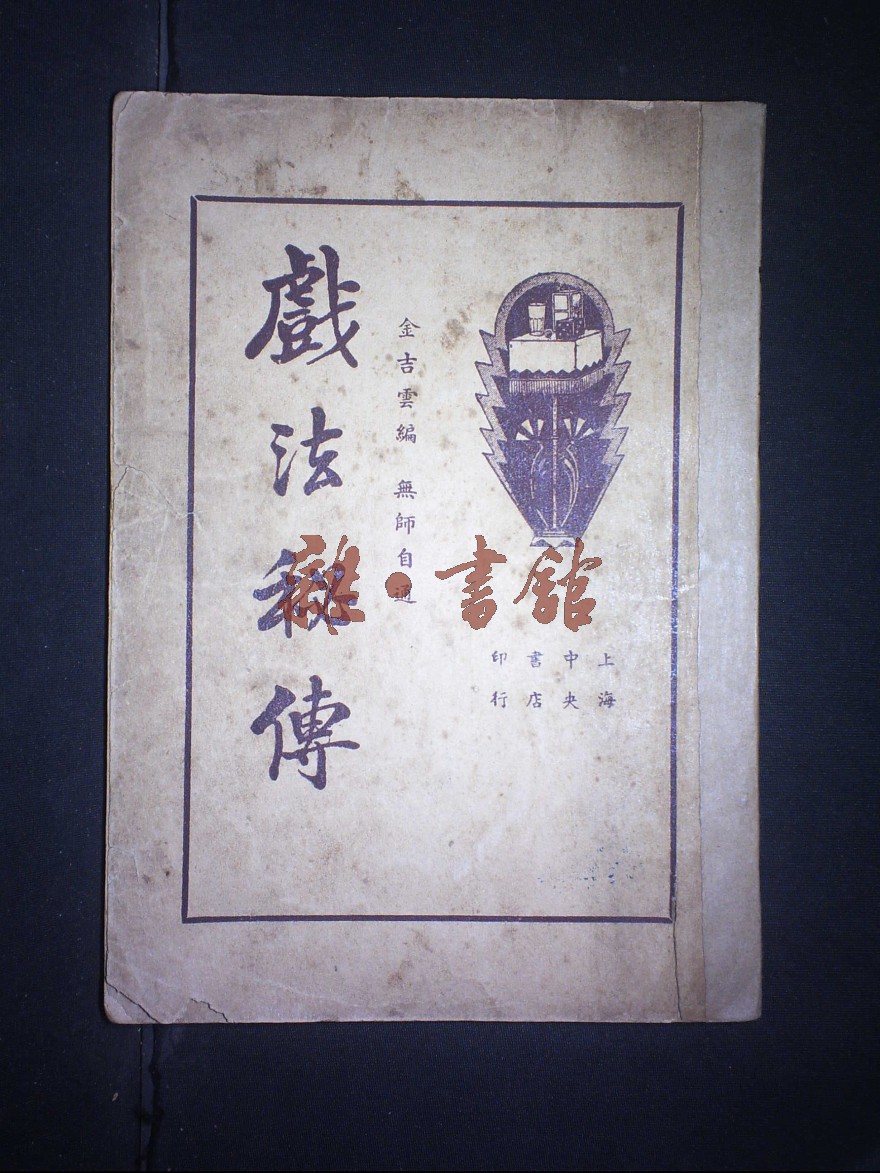 上海
中央
書店
印行
金吉雲編 無師自通
戲法秘傳
雜·書館